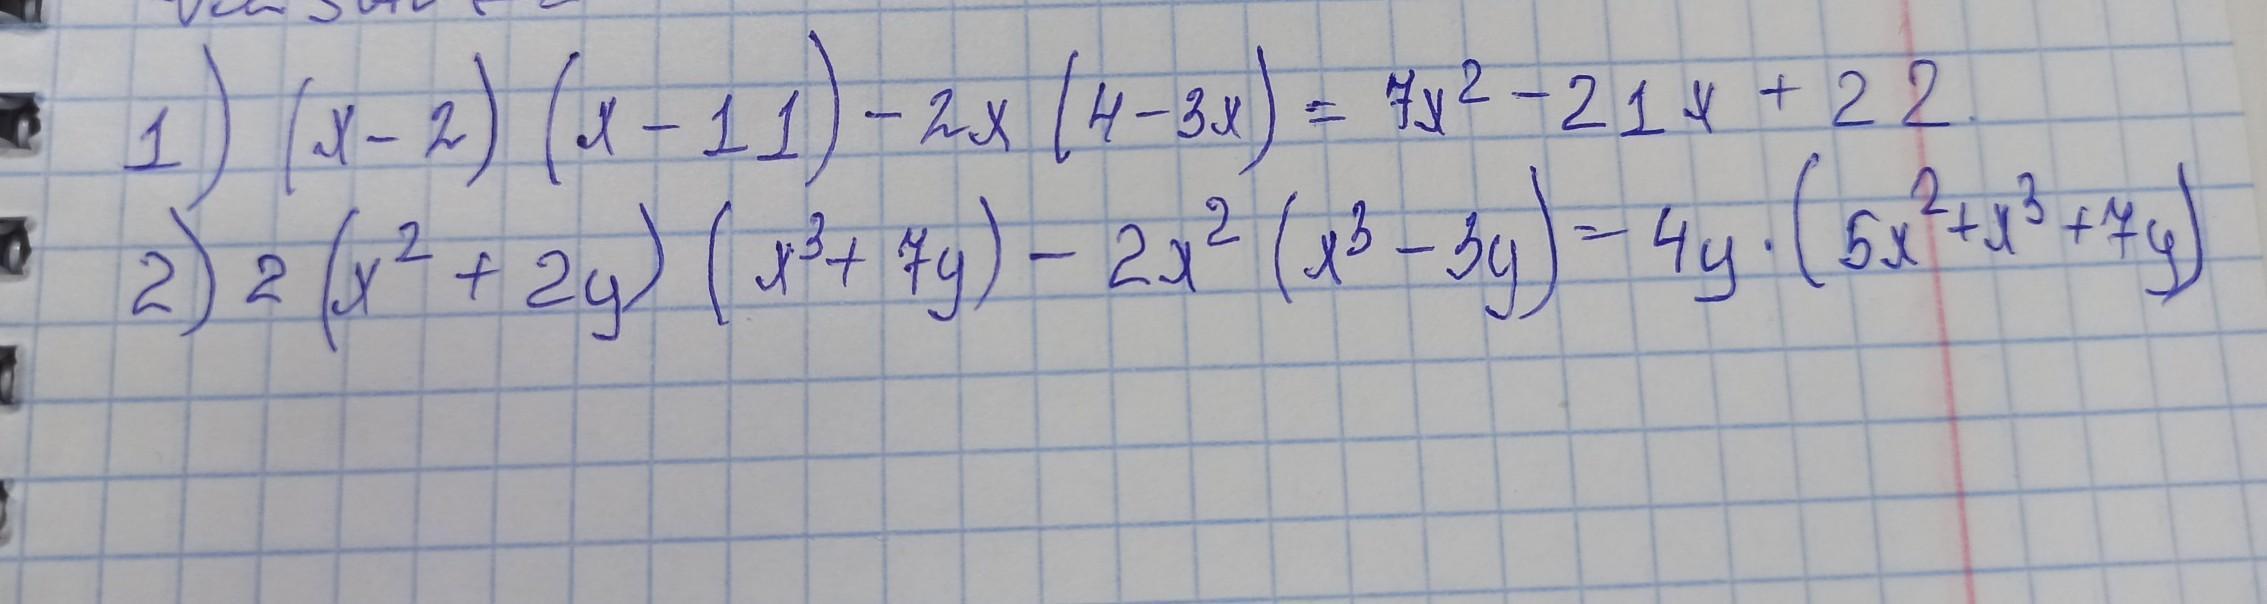 1) (x-2)(x-11)-2x(4-3x)=7x²-21x+22.
2) 2(x²+2y)(x³+7y)-2x²(x³-3y)=4y·(5x²+x³+7y)